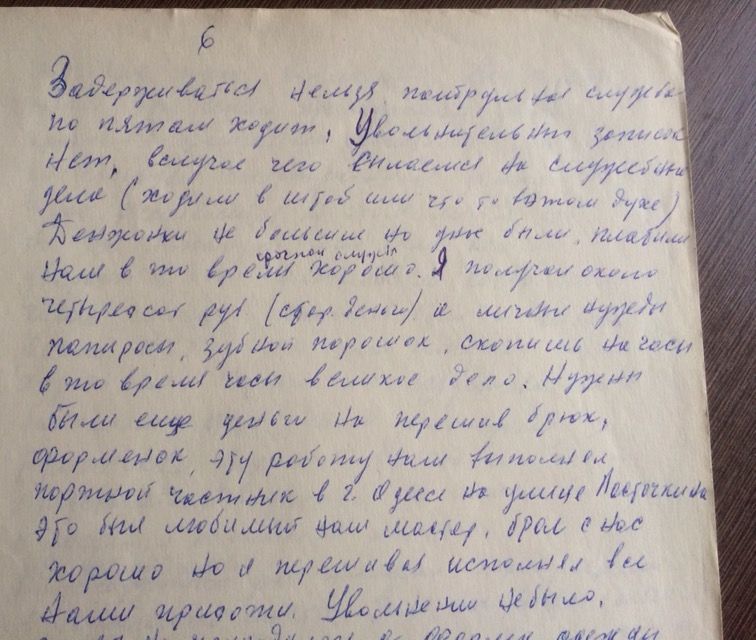 6
Задерживаться нельзя патрульная служба
по пятам ходит, Увольнительных записок
нет, вслучае чего сылаемся на служебные
дела (ходили в штаб или что то втаком духе)
Денжонки не большие но уже были, платили
срочной службы
нам в то время хорошо. Я получал около
четыресот руб (стар. деньги) и личные нужды
папиросы, зубной порошок, скопишь на часы
в то время часы великое дело. Нужны
были еще деньги на перешив брюк,
форменок, эту работу нам выполнял
портной частник в г. Одессе на улице Ласточкина
это был любимый наш мастер, брал с нас
хорошо но и перешивал исполнял все
нами прихоти. Увольнении небыло,